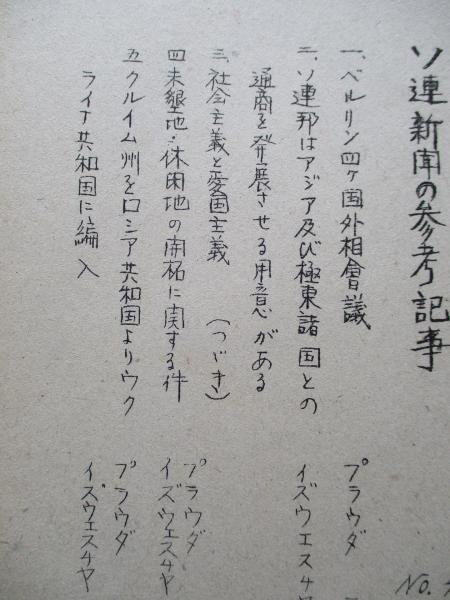 ソ連新聞の参考記事
一、ベルリン四ケ国外相會議 プラウダ
二、ソ連邦はアジア及び極東諸国との
通商を発展させる用意がある イズウエスチヤ
三、社会主義と愛国主義 (つゞき) プラウダ
四 未墾地・休閑地の開拓に関する件 イズウエスチヤ
五 クルイム州をロシア共和国よりウク プラウダ
ライナ共和国に編入 イズウエスチヤ
No.